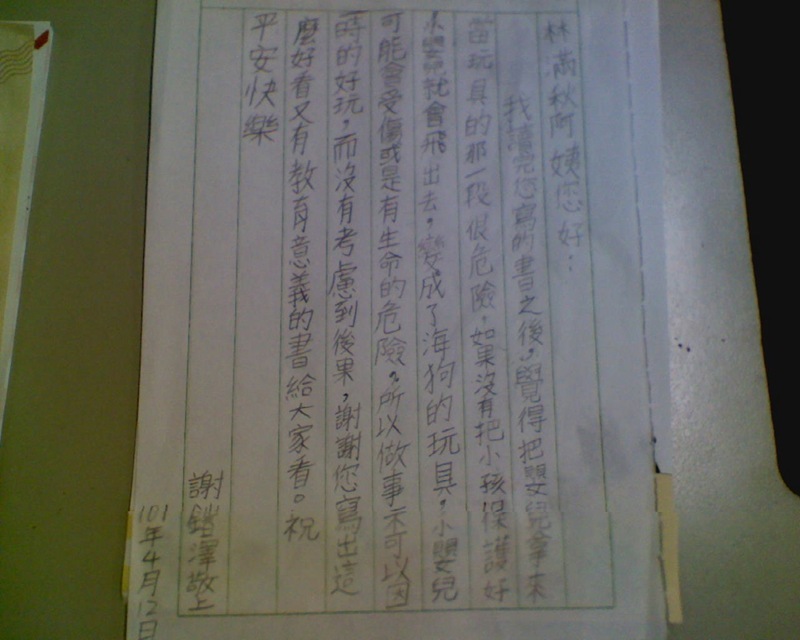 林滿秋阿姨您好：
我讀完您寫的書之後，覺得把嬰兒拿來
當玩具的那一段很危險，如果沒有把小孩保護好
小嬰兒就會飛出去，變成了海狗的玩具，小嬰兒
可能會受傷或是有生命的危險。所以做事不可以因
一時的好玩，而沒有考慮到後果，謝謝您寫出這
麼好看又有教育意義的書給大家看。祝
平安快樂
謝鎧澤敬上
101年4月12日